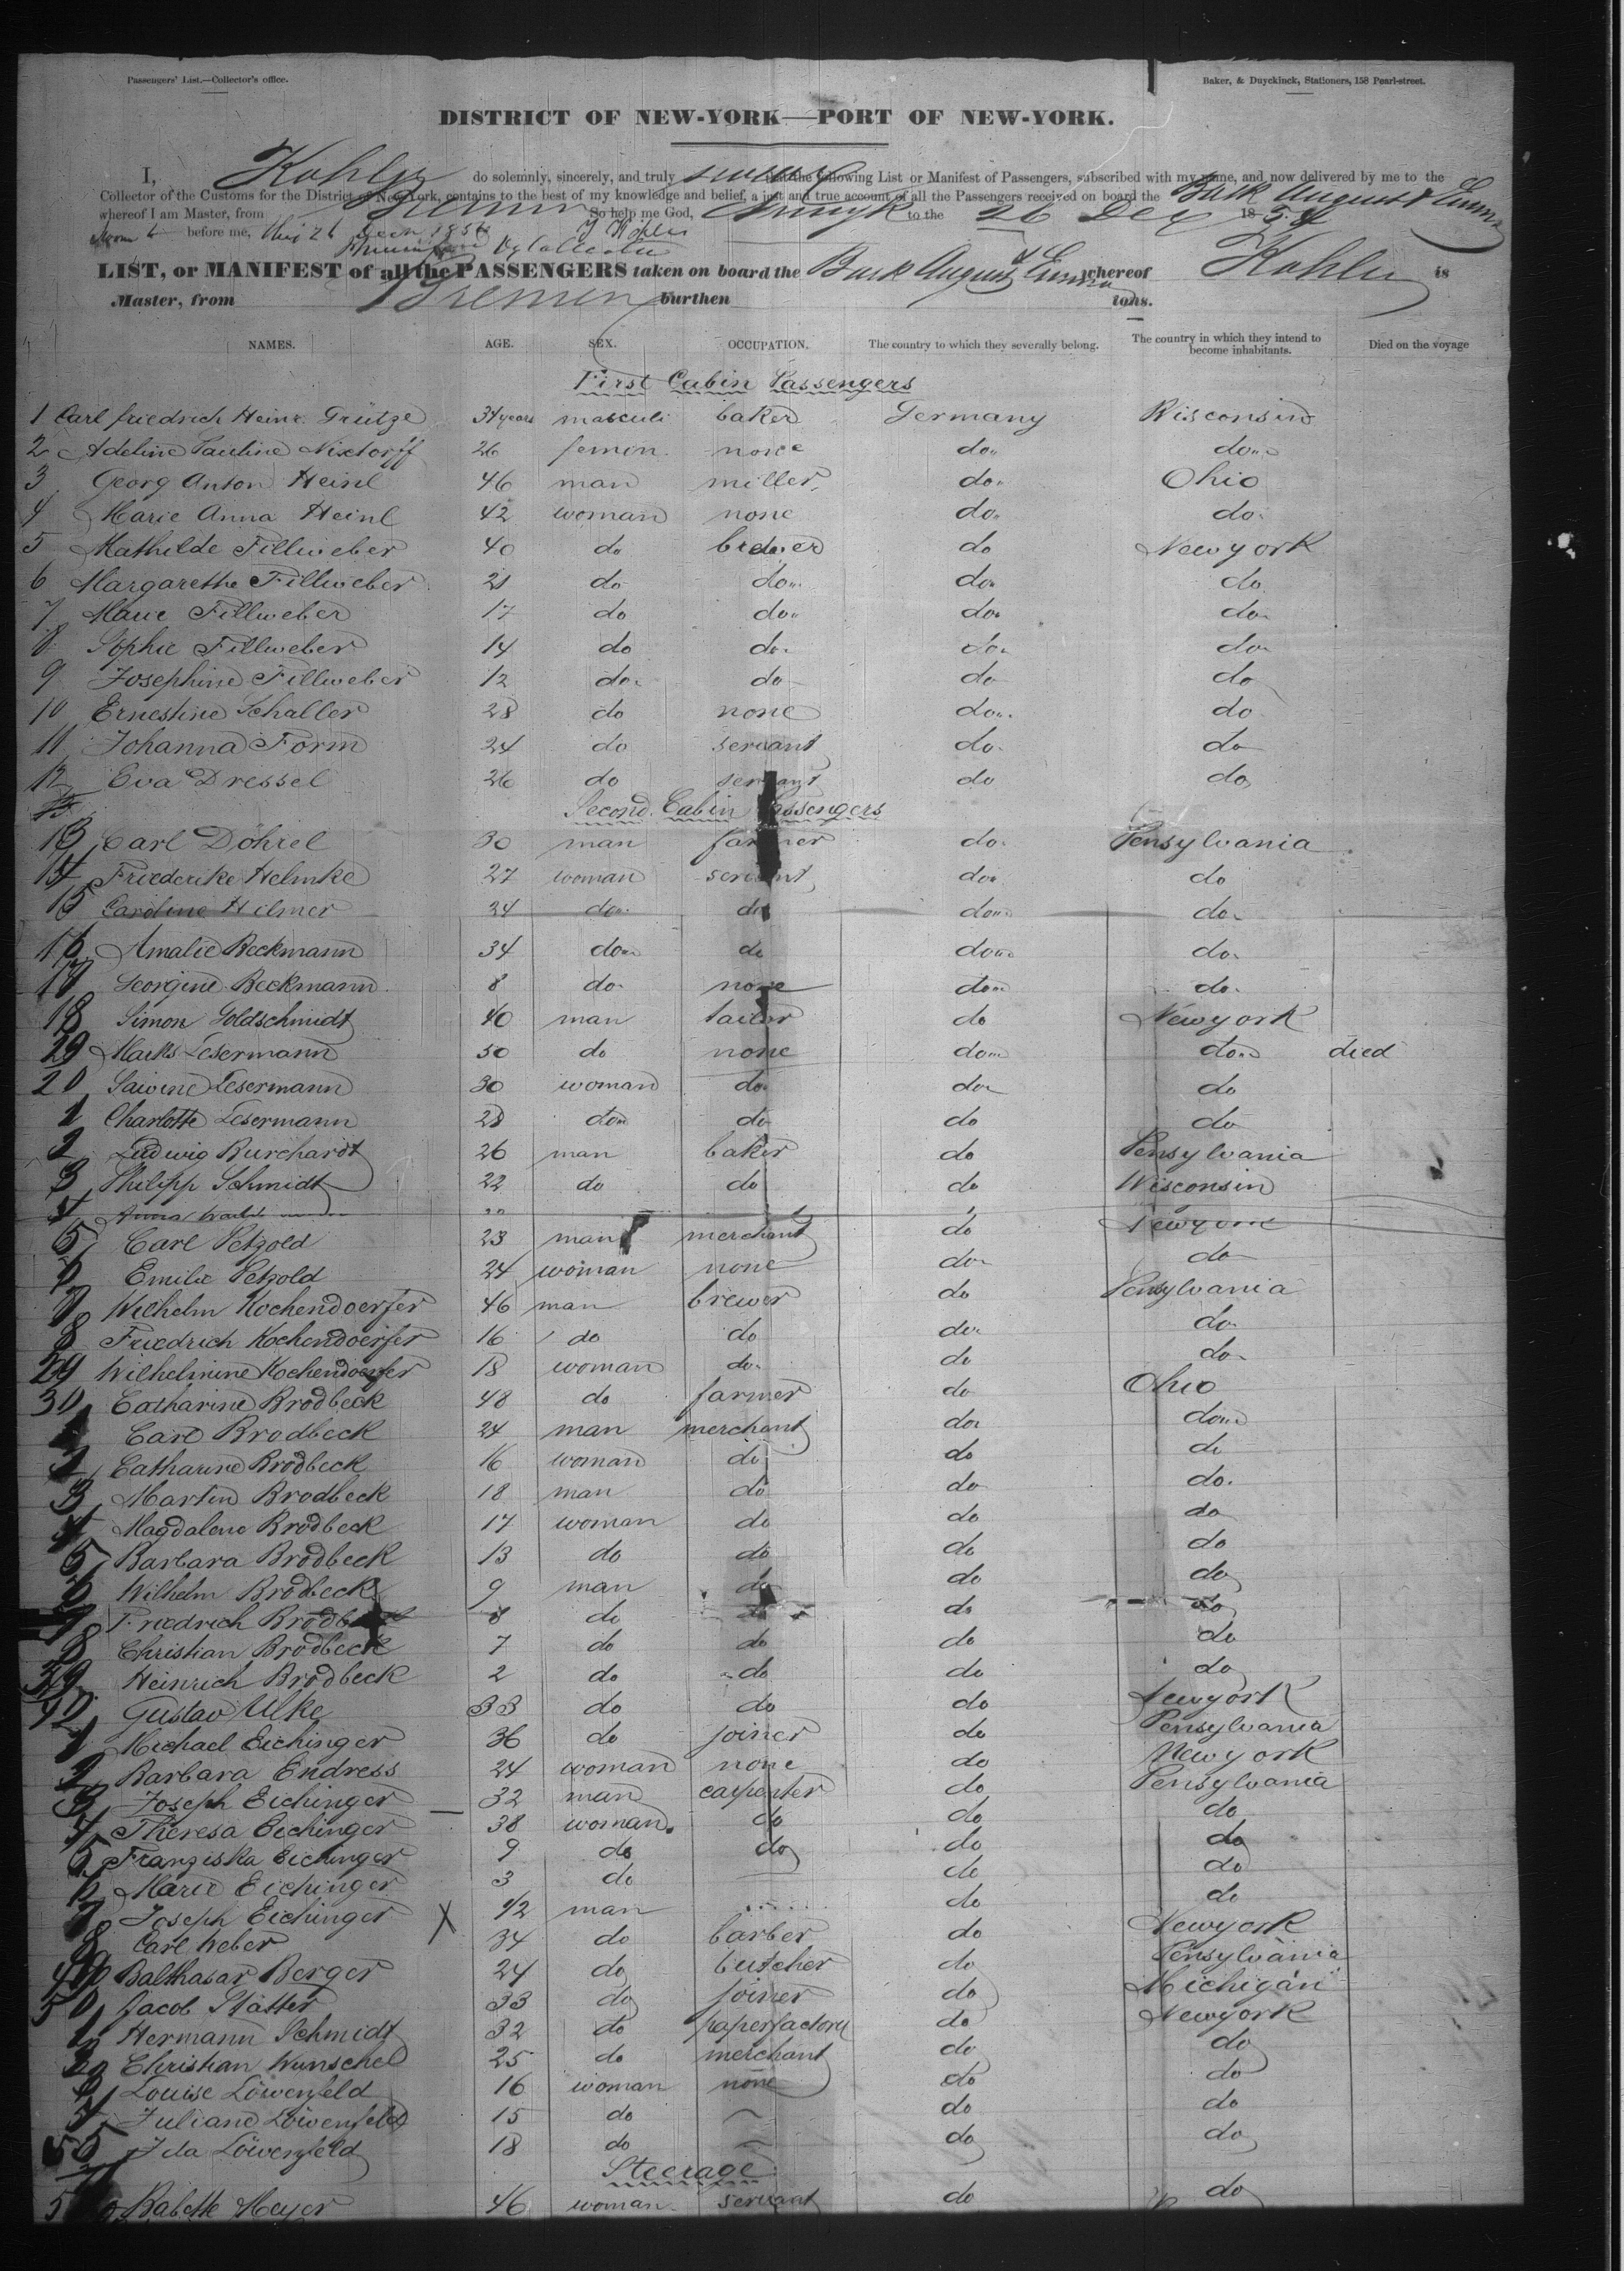 Passengers' List.—Collector's office.
Baker, & Duyckinck, Stationers, 158 Pearl-street.
DISTRICT OF NEW-YORK—PORT OF NEW-YORK.
I, Kohler do solemnly, sincerely, and truly swear that the following List or Manifest of Passengers, subscribed with my name, and now delivered by me to the
Collector of the Customs for the District of New York, contains to the best of my knowledge and belief, a just and true account of all the Passengers received on board the Bark August & Emma
whereof I am Master, from Bremen So help me God, to the 26 Dec 18
before me, this 26 1856 Kohler
LIST, or MANIFEST of all the PASSENGERS taken on board the Bark August & Emma whereof Kohler is
Master, from Bremen burthen tons.
NAMES. AGE. SEX. OCCUPATION. The country to which they severally belong. The country in which they intend to become inhabitants. Died on the voyage
First Cabin Passengers
1 Carl friedrich Heinr. Grütze 34 years masculi baker Germany Wisconsin
2 Adeline Pauline Nixtorff 26 femin. none do do
3 Georg Anton Heinl 46 man miller do Ohio
4 Marie Anna Heinl 42 woman none do do
5 Mathilde Fillweber 40 do brewer do Newyork
6 Margarethe Fillweber 21 do do do do
7 Marie Fillweber 17 do do do do
8 Sophie Fillweber 14 do do do do
9 Josephine Fillweber 12 do do do do
10 Ernestine Schaller 28 do none do do
11 Johanna Form 24 do servant do do
12 Eva Dressel 26 do servant do do
Second Cabin Passengers
13 Carl Döhrel 30 man farmer do Pensylvania
14 Friederike Helmke 27 woman servant do do
15 Caroline Hilmer 24 do do do do
16 Amalie Beckmann 34 do do do do
17 Georgine Beckmann 8 do none do do
18 Simon Goldschmidt 40 man tailor do Newyork
29 Marks Lesermann 50 do none do do died
20 Lesermann 30 woman do do do
1 Charlotte Lesermann 28 do do do do
2 Ludwig Burchardt 26 man baker do Pensylvania
3 Philipp Schmidt 22 do do do Wisconsin
4 Newyork
5 Carl Petzold 23 man merchant do
6 Emilie Petzold 24 woman none do do
7 Wilhelm Kochendoerfer 46 man brewer do Pensylvania
8 Friedrich Kochendoerfer 16 do do do do
29 Wilhelmine Kochendoerfer 18 woman do do do
30 Catharine Brodbeck 48 do farmer do Ohio
Carl Brodbeck 24 man merchant do do
2 Catharine Brodbeck 16 woman do do do
3 Martin Brodbeck 18 man do do do
4 Magdalene Brodbeck 17 woman do do do
5 Barbara Brodbeck 13 do do do do
6 Wilhelm Brodbeck 9 man do do do
7 Friedrich Brodbeck 8 do do do do
8 Christian Brodbeck 7 do do do do
39 Heinrich Brodbeck 2 do do do do
40 Gustav Ulke 33 do do do Newyork
1 Michael Eichinger 36 do joiner do Pensylvania
2 Barbara Endress 24 woman none do Newyork
3 Joseph Eichinger 32 man carpenter do Pensylvania
4 Theresa Eichinger 38 woman do do do
5 Franziska Eichinger 9 do do do do
6 Marie Eichinger 3 do do do
7 Joseph Eichinger X 1/2 man do do
8 Carl Weber 34 do barber do Newyork
49 Balthasar Berger 24 do butcher do Pensylvania
50 Jacob Stätter 33 do joiner do Michigan
1 Hermann Schmidt 32 do paperfactory do Newyork
2 Christian Wunschel 25 do merchant do do
3 Louise Löwenfeld 16 woman none do do
4 Juliane Löwenfeld 15 do do do
55 Ida Löwenfeld 18 do do do
Steerage
5 Babette Meyer 46 woman servant do do